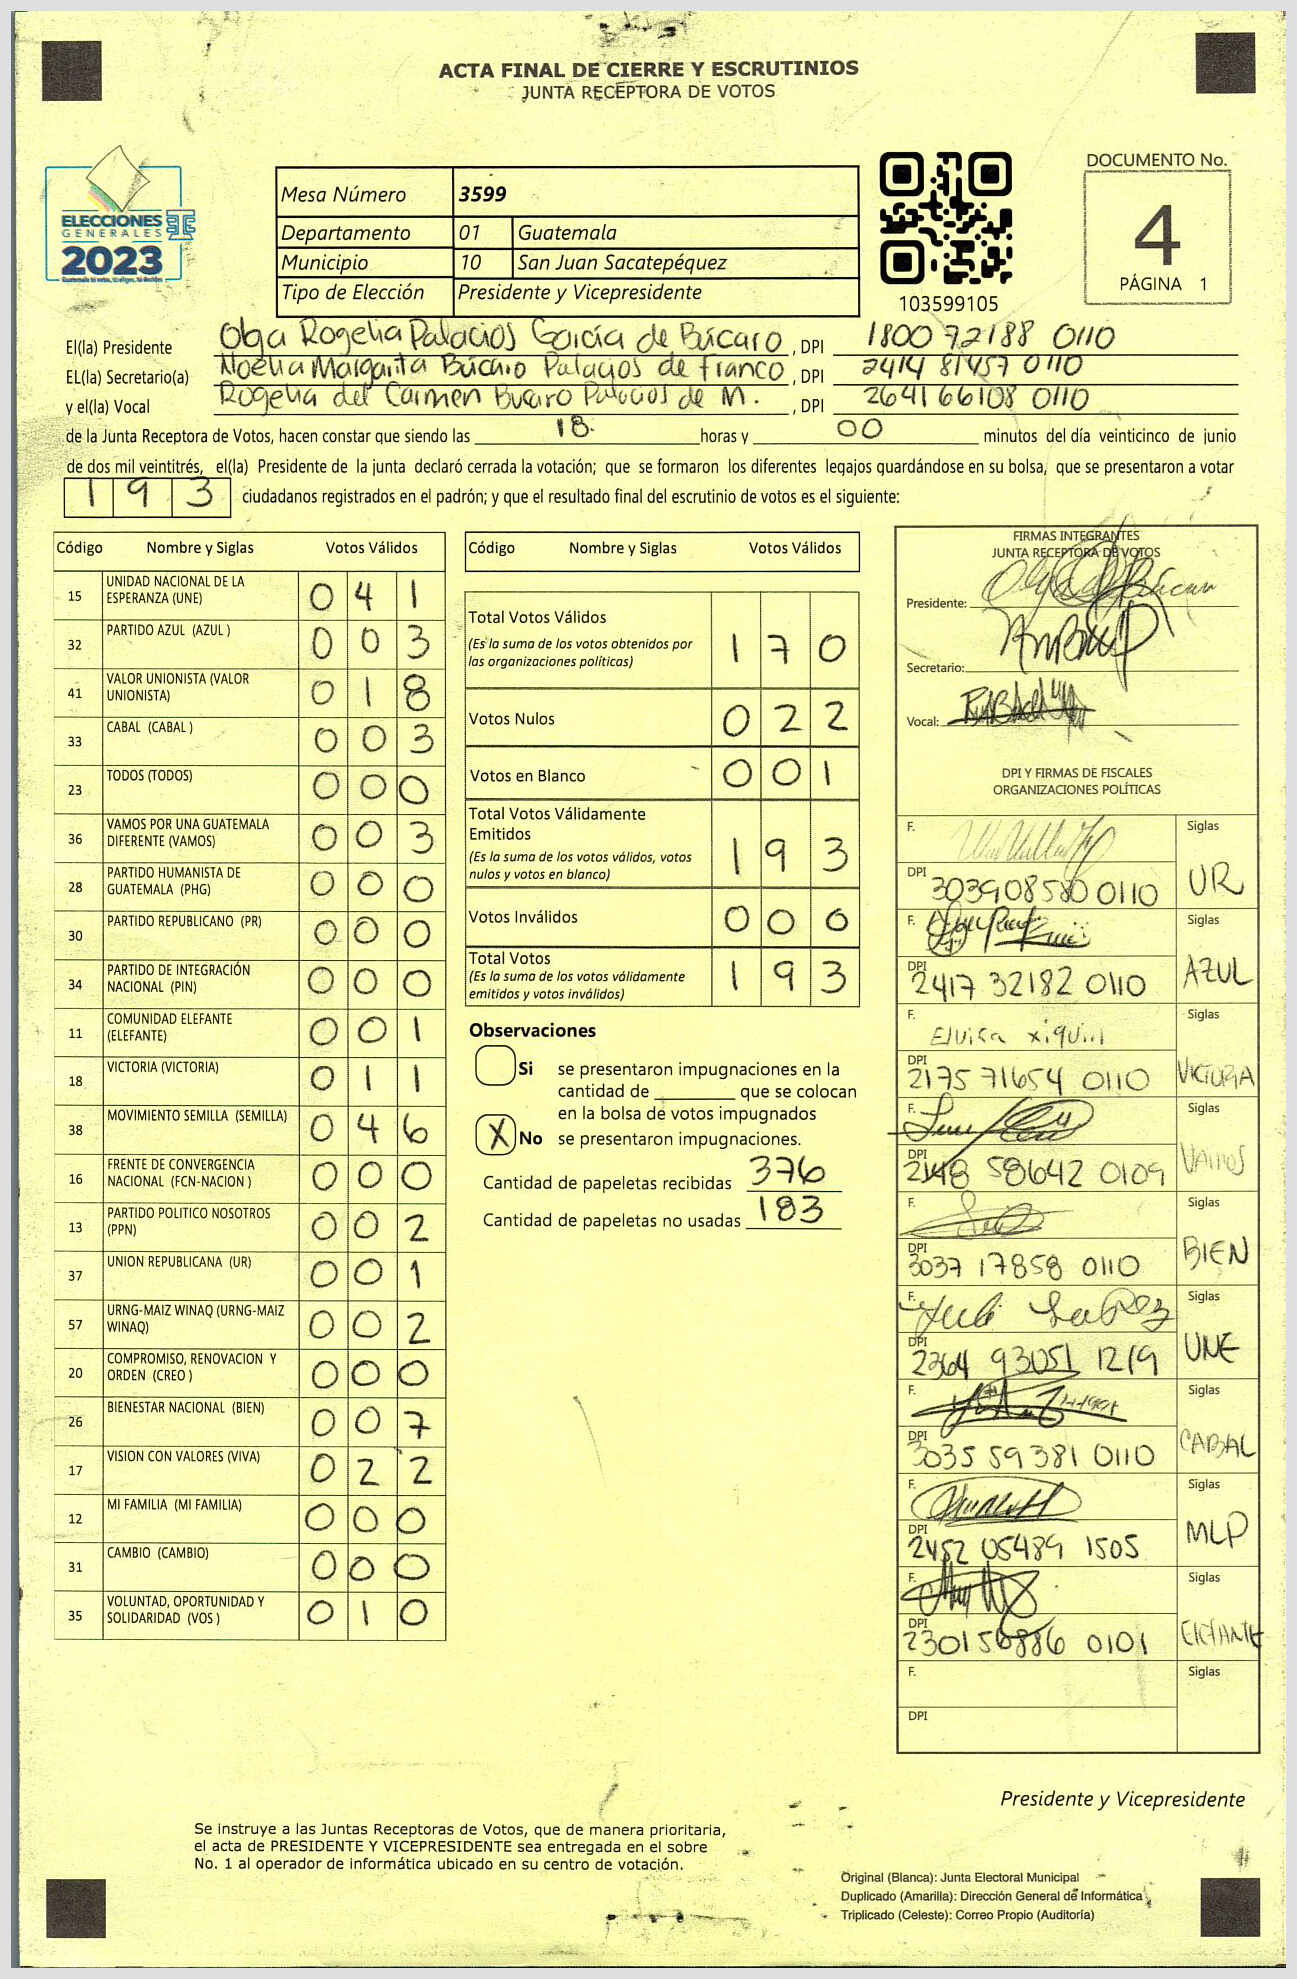 ACTA FINAL DE CIERRE Y ESCRUTINIOS
JUNTA RECEPTORA DE VOTOS
ELECCIONES
GENERALES
2023
Mesa Número 3599
Departamento 01 Guatemala
Municipio 10 San Juan Sacatepéquez
Tipo de Elección Presidente y Vicepresidente
103599105
DOCUMENTO No.
4
PÁGINA 1
El(la) Presidente Olga Rogelia Palacios García de Búcaro , DPI 1800 72188 0110
EL(la) Secretario(a) Noelia Margarita Búcaro Palacios de Franco , DPI 2414 81457 0110
y el(la) Vocal Rogelia del Carmen Bucaro Palacios de M. , DPI 2641 66108 0110
de la Junta Receptora de Votos, hacen constar que siendo las 18 horas y 00 minutos del día veinticinco de junio
de dos mil veintitrés, el(la) Presidente de la junta declaró cerrada la votación; que se formaron los diferentes legajos guardándose en su bolsa, que se presentaron a votar
193 ciudadanos registrados en el padrón; y que el resultado final del escrutinio de votos es el siguiente:
Código Nombre y Siglas Votos Válidos
15 UNIDAD NACIONAL DE LA ESPERANZA (UNE) 041
32 PARTIDO AZUL (AZUL ) 003
41 VALOR UNIONISTA (VALOR UNIONISTA) 018
33 CABAL (CABAL ) 003
23 TODOS (TODOS) 000
36 VAMOS POR UNA GUATEMALA DIFERENTE (VAMOS) 003
28 PARTIDO HUMANISTA DE GUATEMALA (PHG) 000
30 PARTIDO REPUBLICANO (PR) 000
34 PARTIDO DE INTEGRACIÓN NACIONAL (PIN) 000
11 COMUNIDAD ELEFANTE (ELEFANTE) 001
18 VICTORIA (VICTORIA) 011
38 MOVIMIENTO SEMILLA (SEMILLA) 046
16 FRENTE DE CONVERGENCIA NACIONAL (FCN-NACION ) 000
13 PARTIDO POLITICO NOSOTROS (PPN) 002
37 UNION REPUBLICANA (UR) 001
57 URNG-MAIZ WINAQ (URNG-MAIZ WINAQ) 002
20 COMPROMISO, RENOVACION Y ORDEN (CREO ) 000
26 BIENESTAR NACIONAL (BIEN) 007
17 VISION CON VALORES (VIVA) 022
12 MI FAMILIA (MI FAMILIA) 000
31 CAMBIO (CAMBIO) 000
35 VOLUNTAD, OPORTUNIDAD Y SOLIDARIDAD (VOS ) 010
Código Nombre y Siglas Votos Válidos
Total Votos Válidos 170
(Es la suma de los votos obtenidos por
las organizaciones políticas)
Votos Nulos 022
Votos en Blanco 001
Total Votos Válidamente
Emitidos 193
(Es la suma de los votos válidos, votos
nulos y votos en blanco)
Votos Inválidos 000
Total Votos 193
(Es la suma de los votos válidamente
emitidos y votos inválidos)
Observaciones
Si se presentaron impugnaciones en la
cantidad de ________ que se colocan
en la bolsa de votos impugnados
X No se presentaron impugnaciones.
Cantidad de papeletas recibidas 376
Cantidad de papeletas no usadas 183
FIRMAS INTEGRANTES
JUNTA RECEPTORA DE VOTOS
Presidente:
Secretario:
Vocal:
DPI Y FIRMAS DE FISCALES
ORGANIZACIONES POLÍTICAS
F. Siglas
DPI 303908580 0110 UR
F. Siglas
DPI 2417 32182 0110 AZUL
F. Elvira xiquin Siglas
DPI 2175 71654 0110 VICTORIA
F. Siglas
DPI 2148 58642 0109 VAMOS
F. Siglas
DPI 3037 17858 0110 BIEN
F. Siglas
DPI 2364 93051 1219 UNE
F. Siglas
DPI 3035 59381 0110 CABAL
F. Siglas
DPI 2452 05489 1505 MLP
F. Siglas
DPI 2301 56886 0101 ElEfANTE
F. Siglas
DPI
Presidente y Vicepresidente
Se instruye a las Juntas Receptoras de Votos, que de manera prioritaria,
el acta de PRESIDENTE Y VICEPRESIDENTE sea entregada en el sobre
No. 1 al operador de informática ubicado en su centro de votación.
Original (Blanca): Junta Electoral Municipal
Duplicado (Amarilla): Dirección General de Informática
Triplicado (Celeste): Correo Propio (Auditoría)